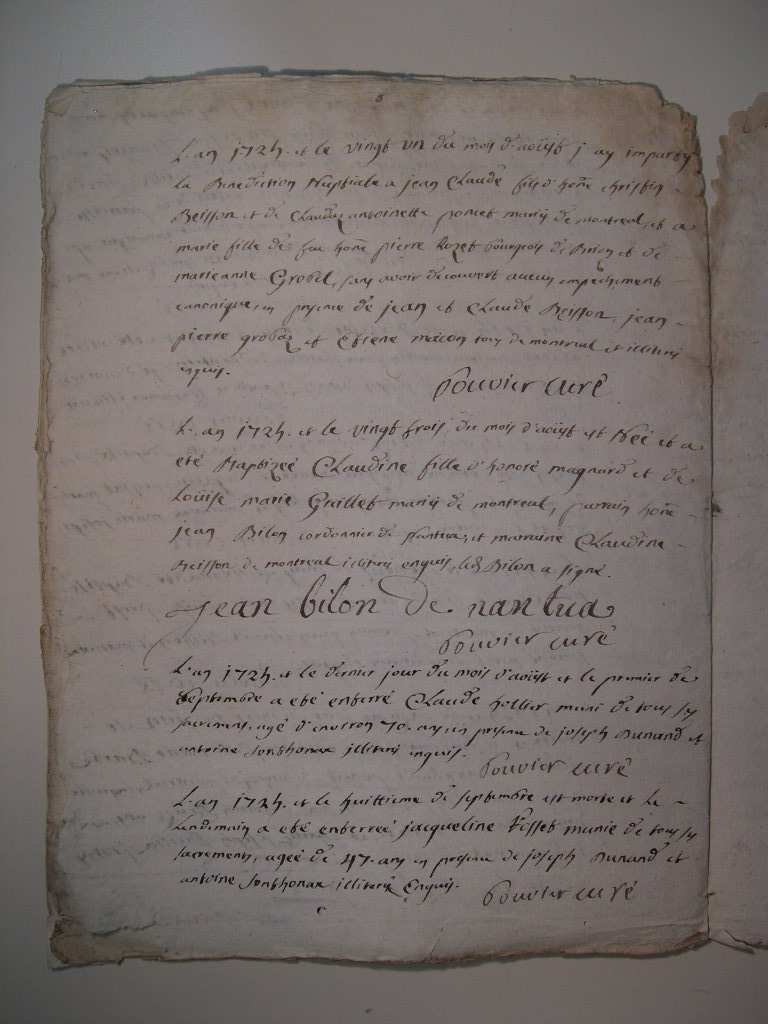 L'an 1724. et le vingt un du mois d'aoüst j'ay imparty
la Benediction Nuptiale a jean Claude fils d'honē christin
Beisson et de Claudine antoinette poncet mariés de montreal, et a
marie fille de feu honē pierre Rozet bourgois de et de
marieanne Grobel, sans avoir decouvert aucun empechement
canonique, en presence de jean et Claude Beisson, jean
pierre et Etiene macon tous de montreal et illiterés
enquis.
bouvier curé
L'an 1724. et le vingt trois du mois d'aoüst est Née et a
eté Baptizeé Claudine fille d'honoré magnard et de
Loüise marie Graillet mariés de montreal, parrain honē
jean Bilon cordonnier de Nantua, et marraine Claudine
Beisson de montreal illiterés enquis, led. Bilon a signé.
jean bilon de nantua
bouvier curé
L'an 1724. et le dernier jour du mois d'aoüst et le premier de
septembre a eté enterré Claude hollier muni de tous ses
sacremens, agé d'environ 70. ans en presence de joseph Durand et
antoine Sonthonax illiterés enquis.
bouvier curé
L'an 1724. et le huittieme de septembre est morte et le
Lendemain a eté enterreé jacqueline Tisset munie de tous ses
sacremens, ageé de 47. ans en presence de joseph Durand et
antoine Sonthonax illiterés Enquis.
bouvier curé